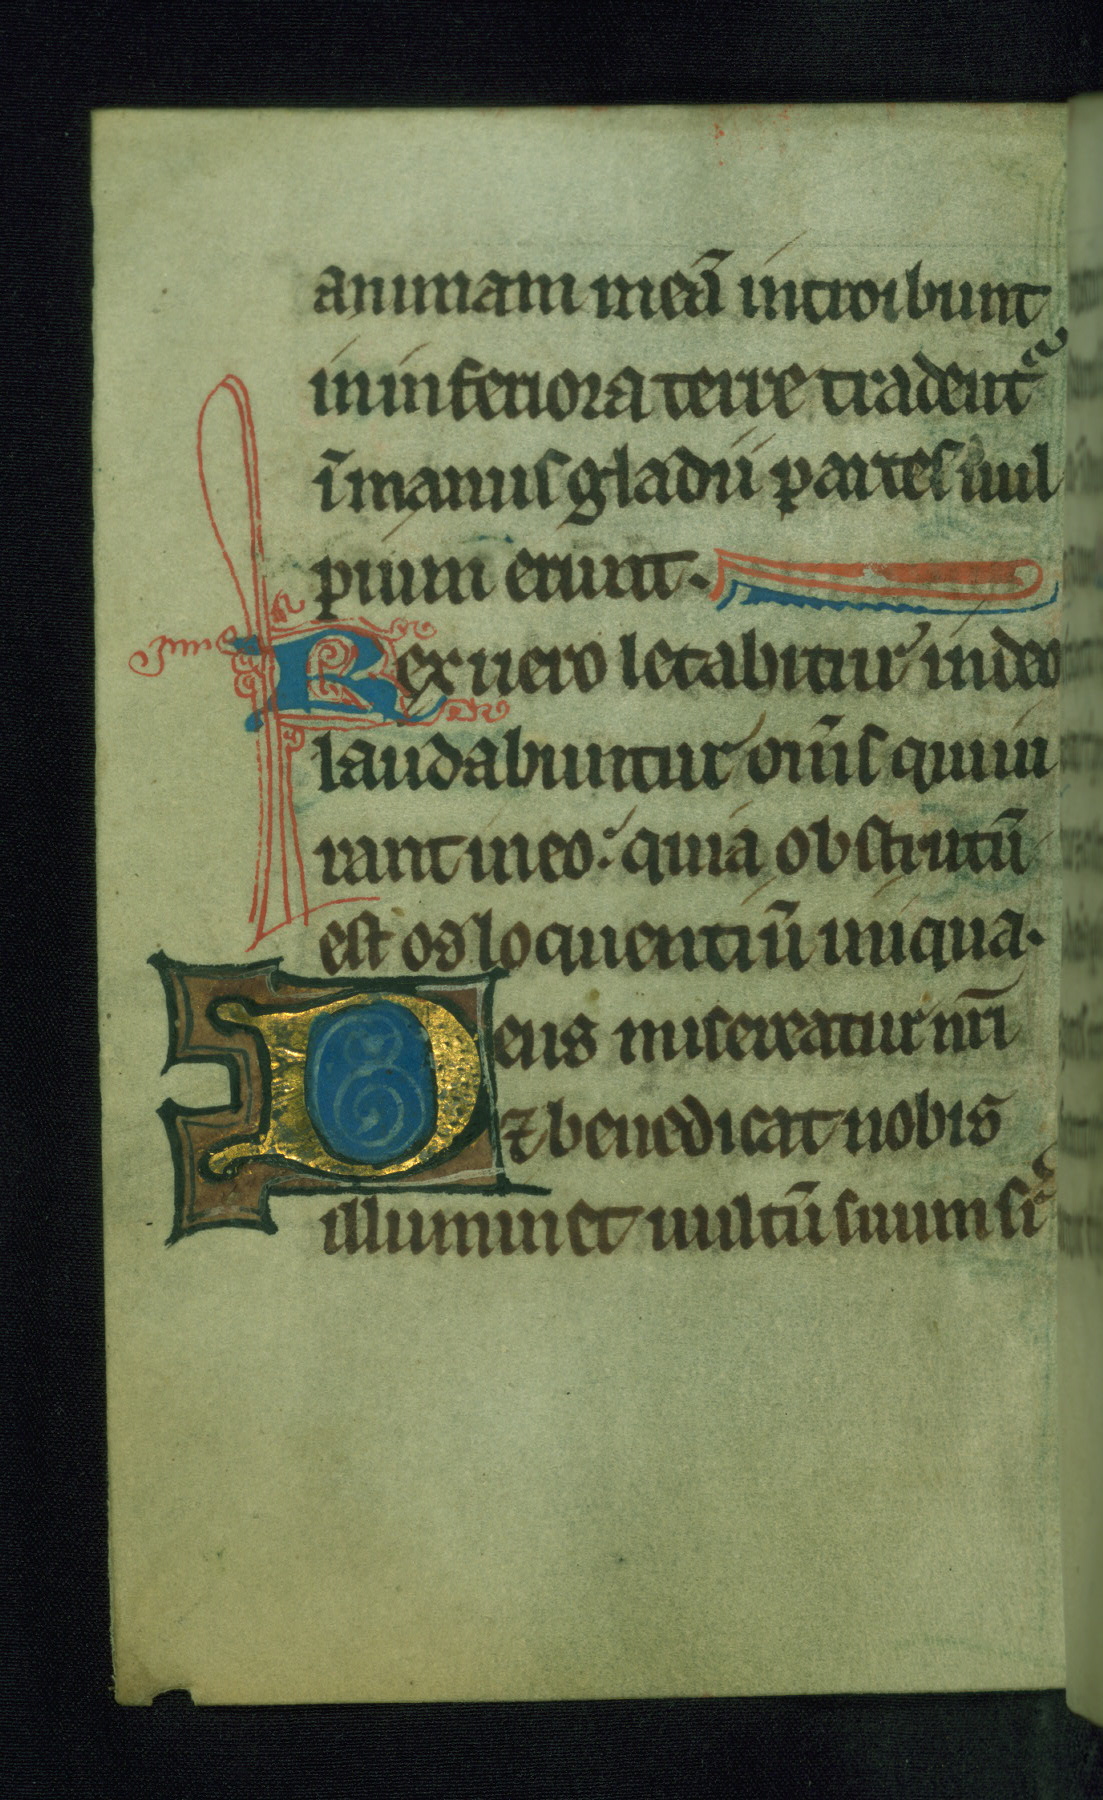 animam meã introibunt
in inferiora terre tradent᷑
ĩ manus gladii partes uul
pium erunt.
Rex uero letabitur in deo
laudabuntur om̃s qui iu
rant in eo: quia obstrutũ
est os loquentiũ iniqua.
Deus misereatur nr̃i
⁊ benedicat nobis
illuminet uultũ suum sr̃